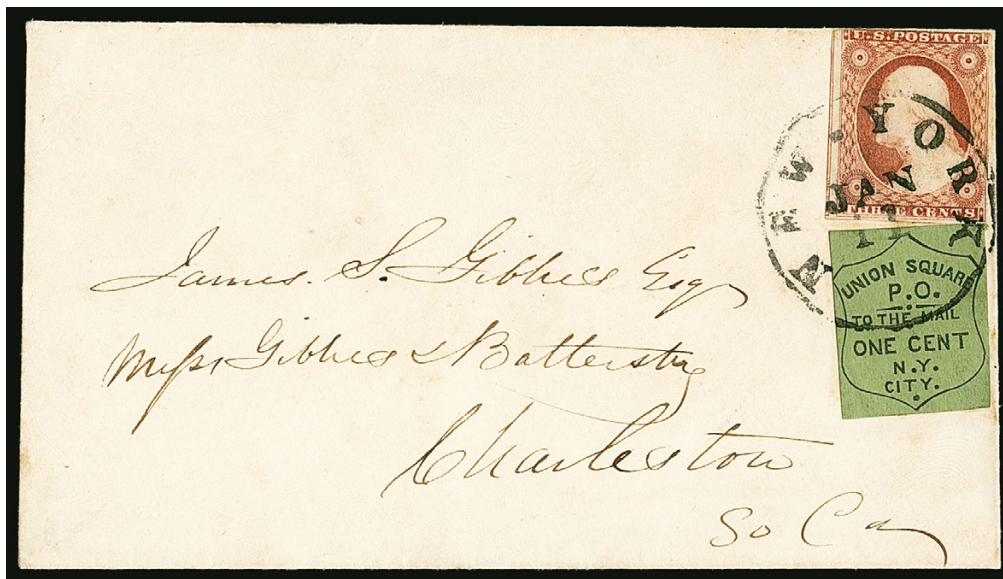 U.S. POSTAGE
THREE CENTS
NEW · YORK
JAN
UNION SQUARE
P.O.
TO THE MAIL
ONE CENT
N.Y.
CITY.
James. S. Gibbes Esq
Messrs Gibbes & Battersby
Charleston
So Ca